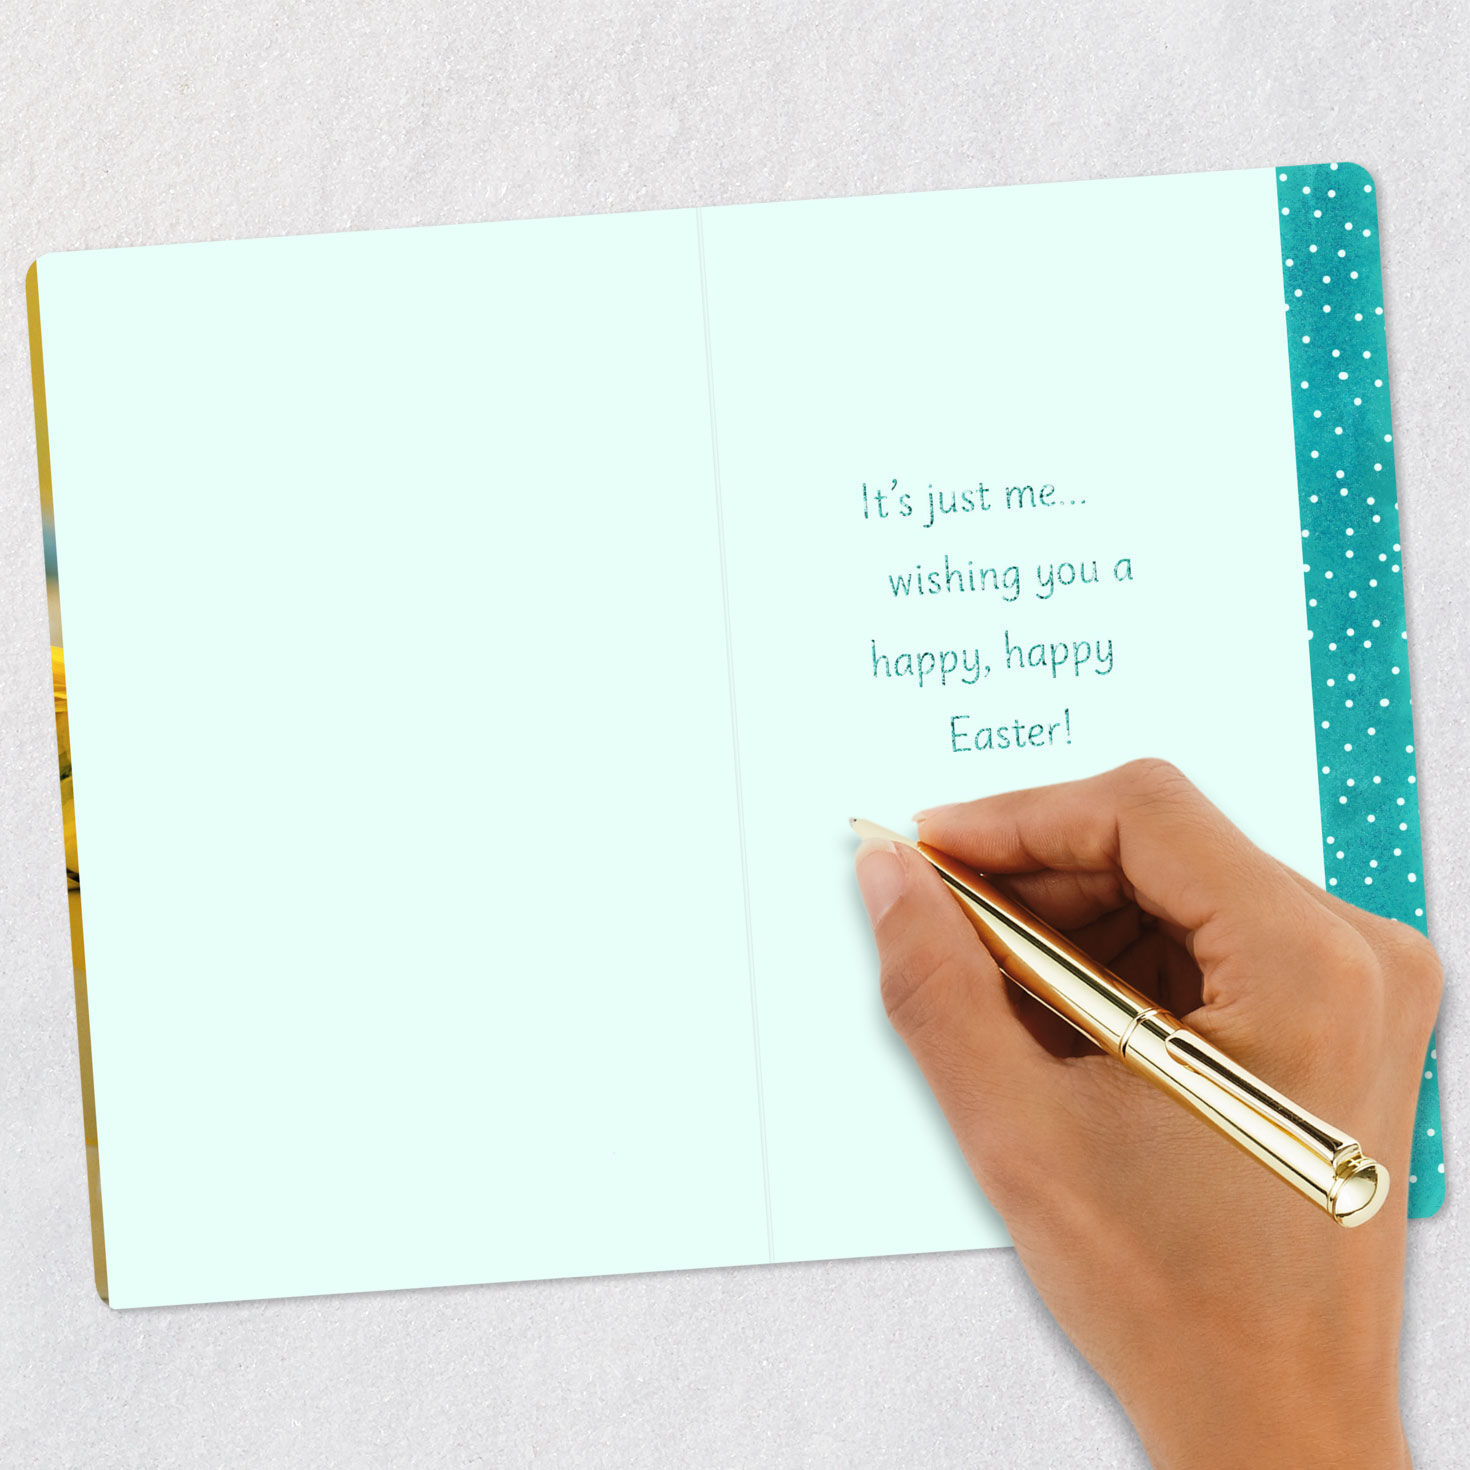 It's just me...
wishing you a
happy, happy
Easter!